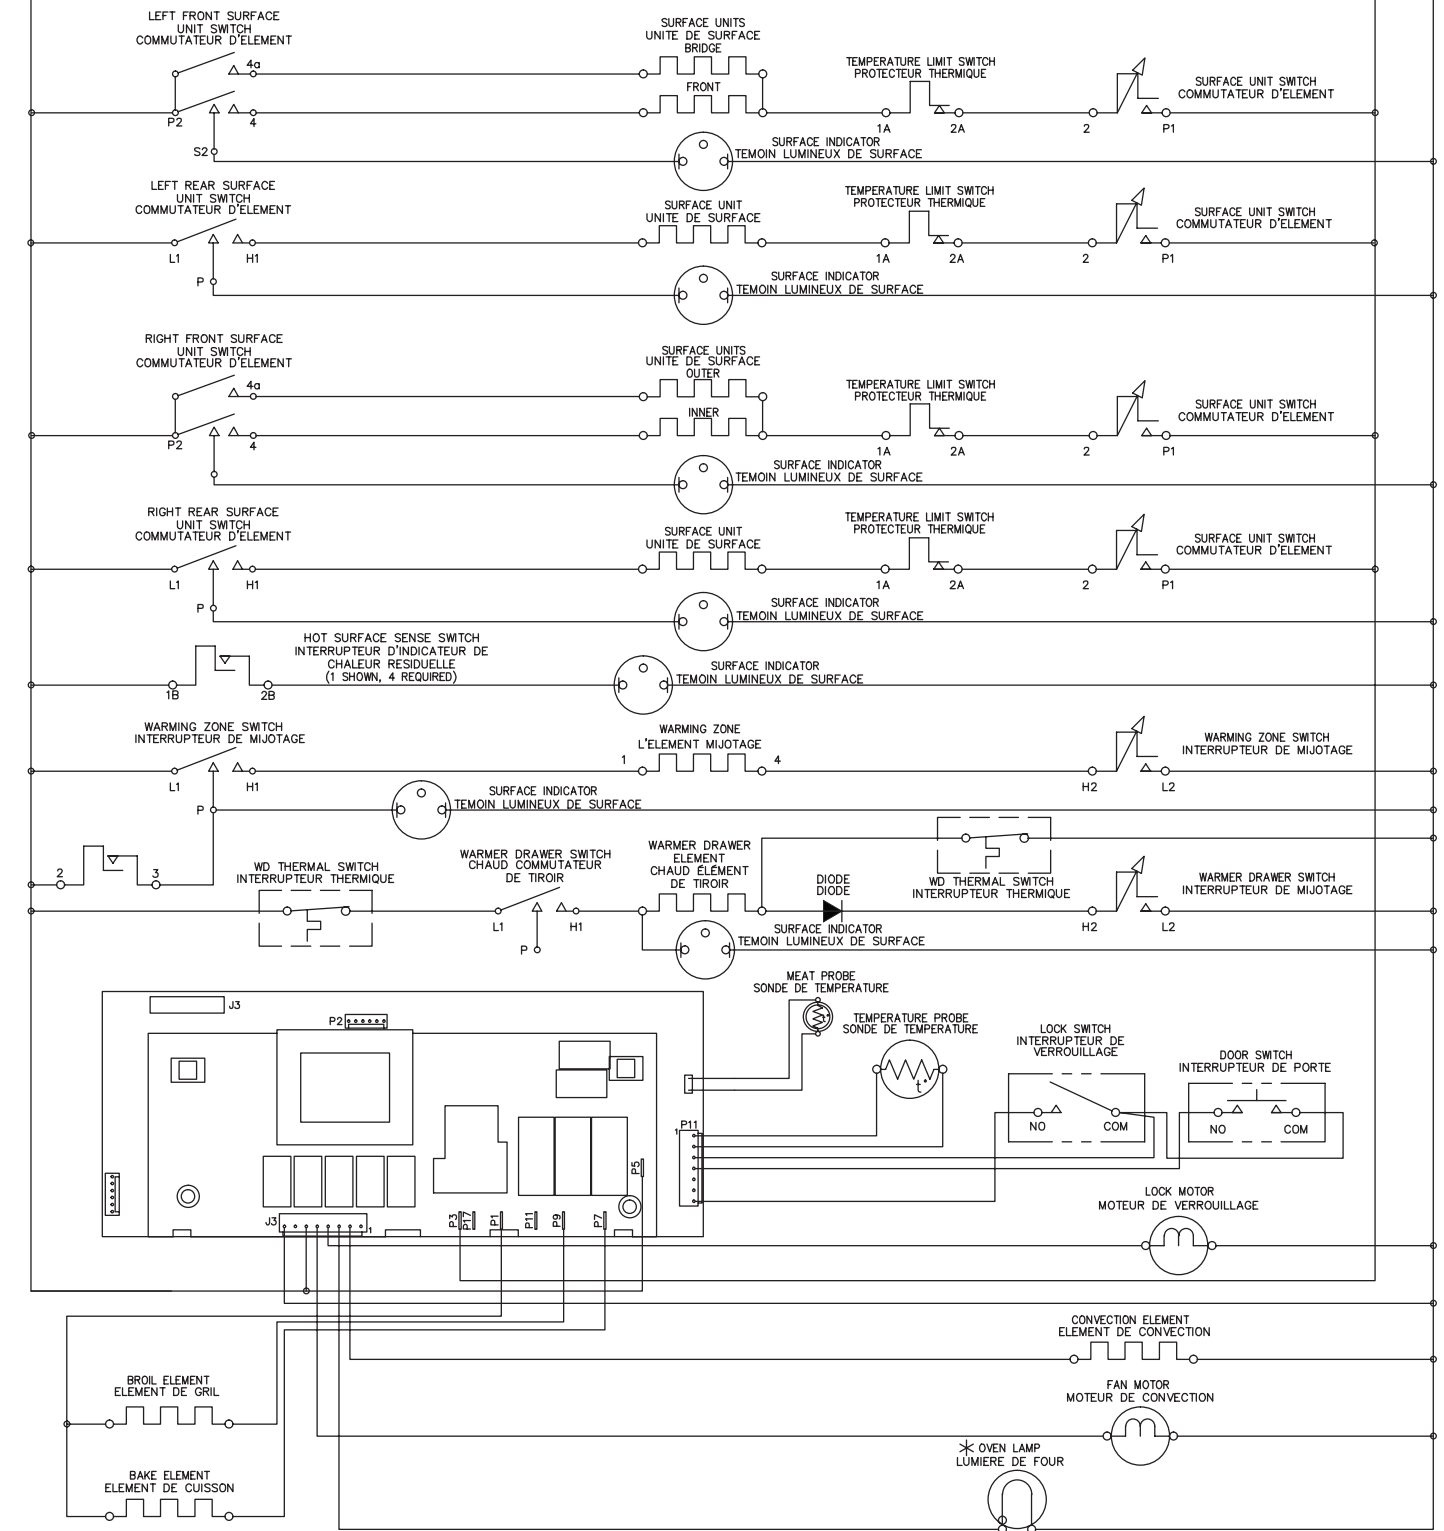 LEFT FRONT SURFACE
UNIT SWITCH
COMMUTATEUR D'ELEMENT
4a
P2
4
S2
SURFACE UNITS
UNITE DE SURFACE
BRIDGE
FRONT
TEMPERATURE LIMIT SWITCH
PROTECTEUR THERMIQUE
1A
2A
2
P1
SURFACE UNIT SWITCH
COMMUTATEUR D'ELEMENT
SURFACE INDICATOR
TEMOIN LUMINEUX DE SURFACE
LEFT REAR SURFACE
UNIT SWITCH
COMMUTATEUR D'ELEMENT
L1
H1
P
SURFACE UNIT
UNITE DE SURFACE
TEMPERATURE LIMIT SWITCH
PROTECTEUR THERMIQUE
1A
2A
2
P1
SURFACE UNIT SWITCH
COMMUTATEUR D'ELEMENT
SURFACE INDICATOR
TEMOIN LUMINEUX DE SURFACE
RIGHT FRONT SURFACE
UNIT SWITCH
COMMUTATEUR D'ELEMENT
4a
P2
4
SURFACE UNITS
UNITE DE SURFACE
OUTER
INNER
TEMPERATURE LIMIT SWITCH
PROTECTEUR THERMIQUE
1A
2A
2
P1
SURFACE UNIT SWITCH
COMMUTATEUR D'ELEMENT
SURFACE INDICATOR
TEMOIN LUMINEUX DE SURFACE
RIGHT REAR SURFACE
UNIT SWITCH
COMMUTATEUR D'ELEMENT
L1
H1
P
SURFACE UNIT
UNITE DE SURFACE
TEMPERATURE LIMIT SWITCH
PROTECTEUR THERMIQUE
1A
2A
2
P1
SURFACE UNIT SWITCH
COMMUTATEUR D'ELEMENT
SURFACE INDICATOR
TEMOIN LUMINEUX DE SURFACE
HOT SURFACE SENSE SWITCH
INTERRUPTEUR D'INDICATEUR DE
CHALEUR RESIDUELLE
(1 SHOWN, 4 REQUIRED)
1B
2B
SURFACE INDICATOR
TEMOIN LUMINEUX DE SURFACE
WARMING ZONE SWITCH
INTERRUPTEUR DE MIJOTAGE
L1
H1
P
WARMING ZONE
L'ELEMENT MIJOTAGE
1
4
H2
L2
WARMING ZONE SWITCH
INTERRUPTEUR DE MIJOTAGE
SURFACE INDICATOR
TEMOIN LUMINEUX DE SURFACE
2
3
WD THERMAL SWITCH
INTERRUPTEUR THERMIQUE
WARMER DRAWER SWITCH
CHAUD COMMUTATEUR
DE TIROIR
L1
H1
P
WARMER DRAWER
ELEMENT
CHAUD ÉLÉMENT
DE TIROIR
DIODE
DIODE
WD THERMAL SWITCH
INTERRUPTEUR THERMIQUE
H2
L2
WARMER DRAWER SWITCH
INTERRUPTEUR DE MIJOTAGE
SURFACE INDICATOR
TEMOIN LUMINEUX DE SURFACE
MEAT PROBE
SONDE DE TEMPERATURE
t°
TEMPERATURE PROBE
SONDE DE TEMPERATURE
t°
LOCK SWITCH
INTERRUPTEUR DE
VERROUILLAGE
NO
COM
DOOR SWITCH
INTERRUPTEUR DE PORTE
NO
COM
J3
P2
P11
1
P5
J3
1
P3
P17
P1
P11
P9
P7
LOCK MOTOR
MOTEUR DE VERROUILLAGE
CONVECTION ELEMENT
ELEMENT DE CONVECTION
BROIL ELEMENT
ELEMENT DE GRIL
FAN MOTOR
MOTEUR DE CONVECTION
BAKE ELEMENT
ELEMENT DE CUISSON
* OVEN LAMP
LUMIERE DE FOUR